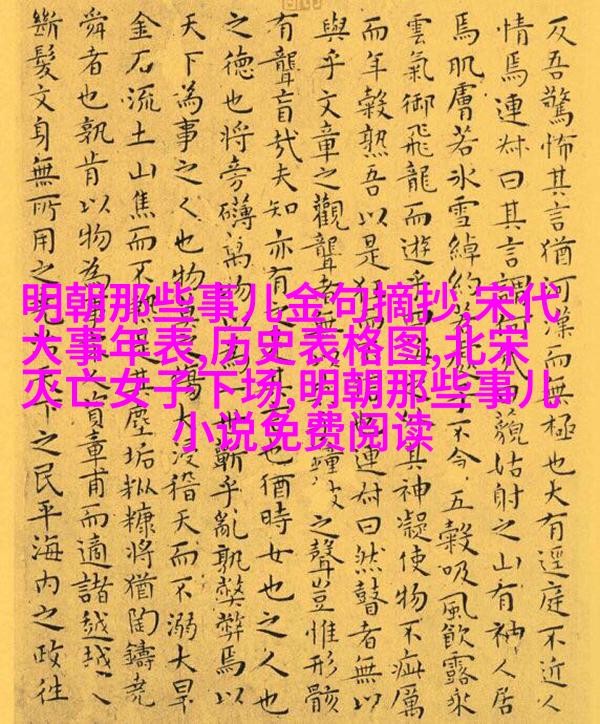 明朝那些事儿金句摘抄,宋代
大事年表,历史表格图,北宋
灭亡女子下场,明朝那些事儿
小说免费阅读
反吾驚怖其言猶河漢而無極也大有逕庭不近人
情焉連叔曰其言謂何哉曰藐姑射之山有神人居
焉肌膚若冰雪綽約若子不食五穀吸風飲露乘
雲氣御飛龍而遊乎四其神凝使物不疵厲
而年穀熟吾以是狂連叔曰然瞽者無以
與乎文章之觀聾者無以鐘之聲豈惟形骸
有聾盲哉夫知亦有之也猶時女也之人也
之德也將旁礴萬物世蘄乎亂孰弊弊焉以
天下為事之人也物莫傷大浸稽天而不溺大旱
金石流土山焦而不熱是其塵垢粃糠將猶陶鑄堯
舜者也孰肯以物為資章甫而適諸越越人
斷髮文身無所用之天下之民平海内之政往